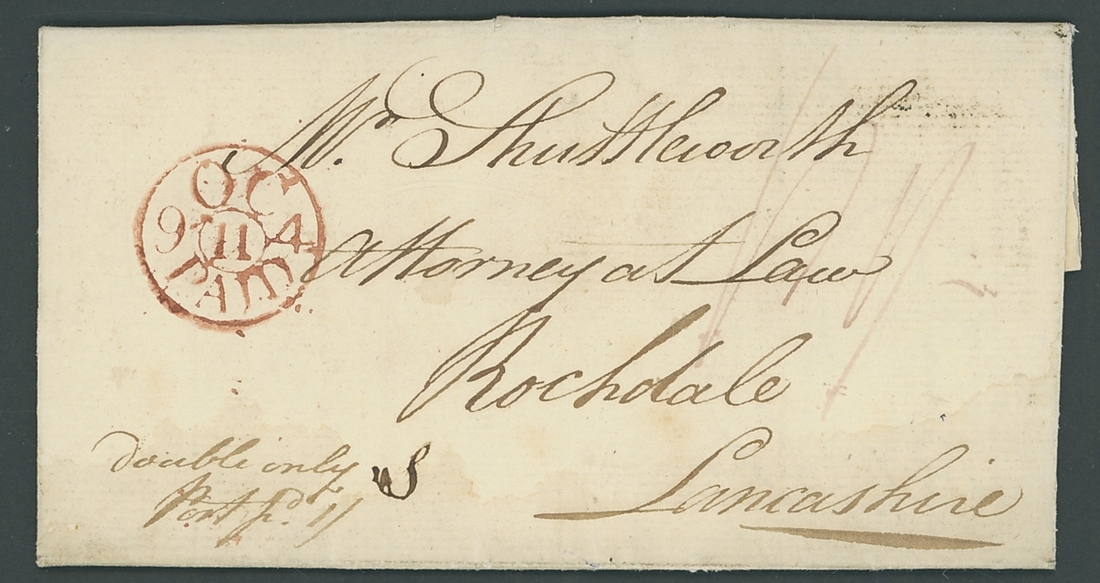 Mr. Shuttleworth
OC
9 11 4
PAID
Attorney at Law
Rochdale
Lancashire
double only
Post pd. 1/